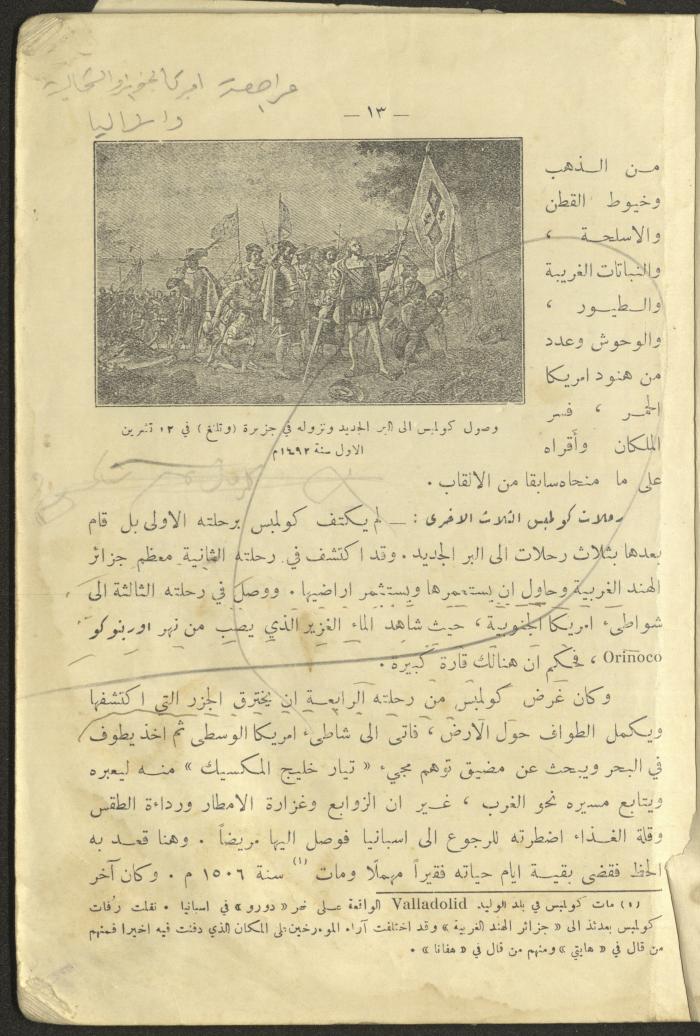 مراجعة امركا الجنوبية والشمالية
— ١٣ —
من الذهب
وخيوط القطن
والاسلحة ،
والنباتات الغريبة
والطيور ،
والوحوش وعدد
من هنود امريكا
الحمر ، فسر
الملكان وأقراه
على ما منحاه سابقا من الالقاب .
وصول كولمبس الى البر الجديد ونزوله في جزيرة (وتلنغ) في ١٢ تشرين
الاول سنة ١٤٩٢م
رحلات كولمبس الثلاث الاخرى : — لم يكتف كولمبس برحلته الاولى بل قام
بعدها بثلاث رحلات الى البر الجديد . وقد اكتشف في رحلته الثانية معظم جزائر
الهند الغربية وحاول ان يستعمرها ويستثمر اراضيها . ووصل في رحلته الثالثة الى
شواطىء امريكا الجنوبية ، حيث شاهد الماء الغزير الذي يصب من نهر اورينوكو
Orinoco ، فحكم ان هنالك قارة كبيرة .
وكان غرض كولمبس من رحلته الرابعة ان يخترق الجزر التي اكتشفها
ويكمل الطواف حول الارض ، فاتى الى شاطىء امريكا الوسطى ثم اخذ يطوف
في البحر ويبحث عن مضيق توهم مجيء « تيار خليج المكسيك » منه ليعبره
ويتابع مسيره نحو الغرب ، غير ان الزوابع وغزارة الامطار ورداءة الطقس
وقلة الغذاء اضطرته للرجوع الى اسبانيا فوصل اليها مريضاً . وهنا قعد به
الحظ فقضى بقية ايام حياته فقيراً مهملًا ومات (١) سنة ١٥٠٦ م . وكان آخر
(١) مات كولمبس في بلد الوليد Valladolid الواقعة على نهر « دورو » في اسبانيا . نقلت رُفات
كولمبس بعدئذ الى « جزائر الهند الغربية » وقد اختلفت آراء المؤرخين على المكان الذي دفنت فيه اخيرا فمنهم
من قال في « هايتي » ومنهم من قال في « هفانا » .